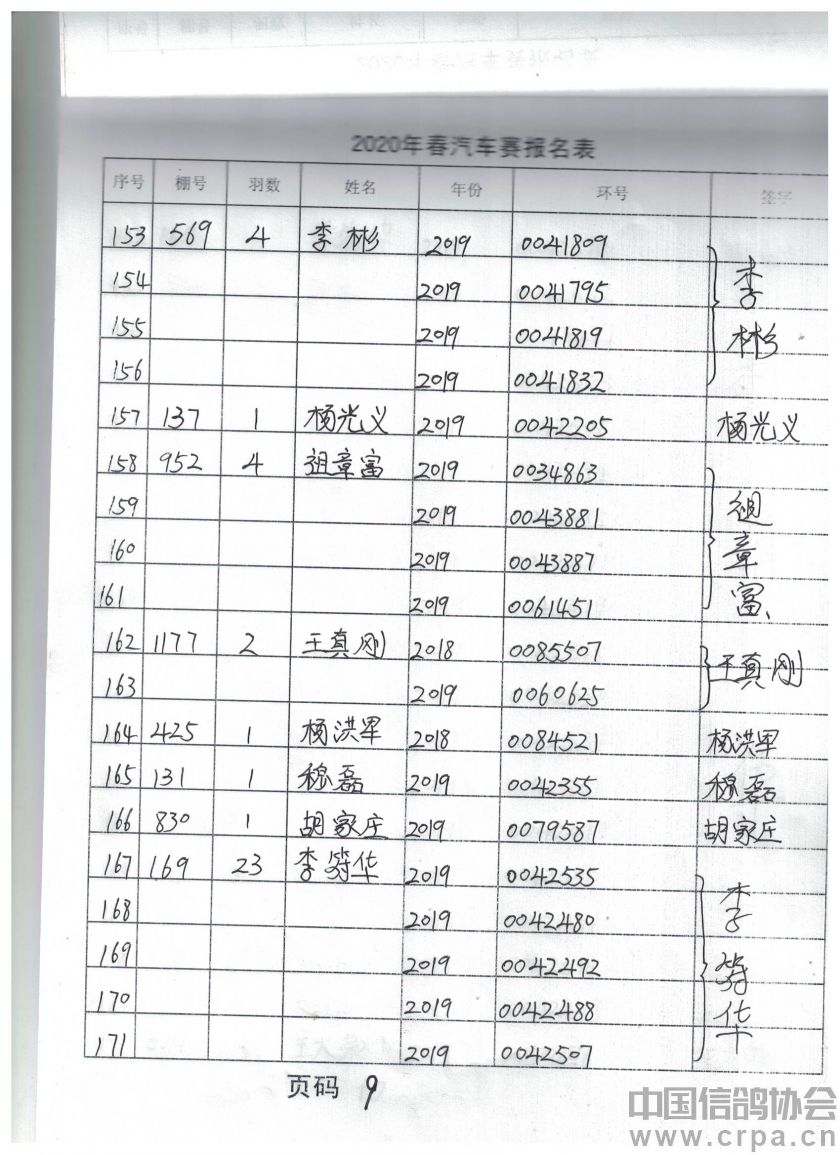 2020年春汽车赛报名表
序号 棚号 羽数 姓名 年份 环号 签字
153 569 4 李彬 2019 0041809
154 2019 0041795 李
155 2019 0041819 彬
156 2019 0041832
157 137 1 杨光义 2019 0042205 杨光义
158 952 4 祖章富 2019 0034863
159 2019 0043881 祖
160 2019 0043887 章
161 2019 0061451 富
162 1177 2 王真刚 2018 0085507 王真刚
163 2019 0060625
164 425 1 杨洪军 2018 0084521 杨洪军
165 131 1 穆磊 2019 0042355 穆磊
166 830 1 胡家庄 2019 0079587 胡家庄
167 169 23 李 华 2019 0042535
168 2019 0042480 李
169 2019 0042492
170 2019 0042488 华
171 2019 0042507
页码 9
中国信鸽协会
www.crpa.cn